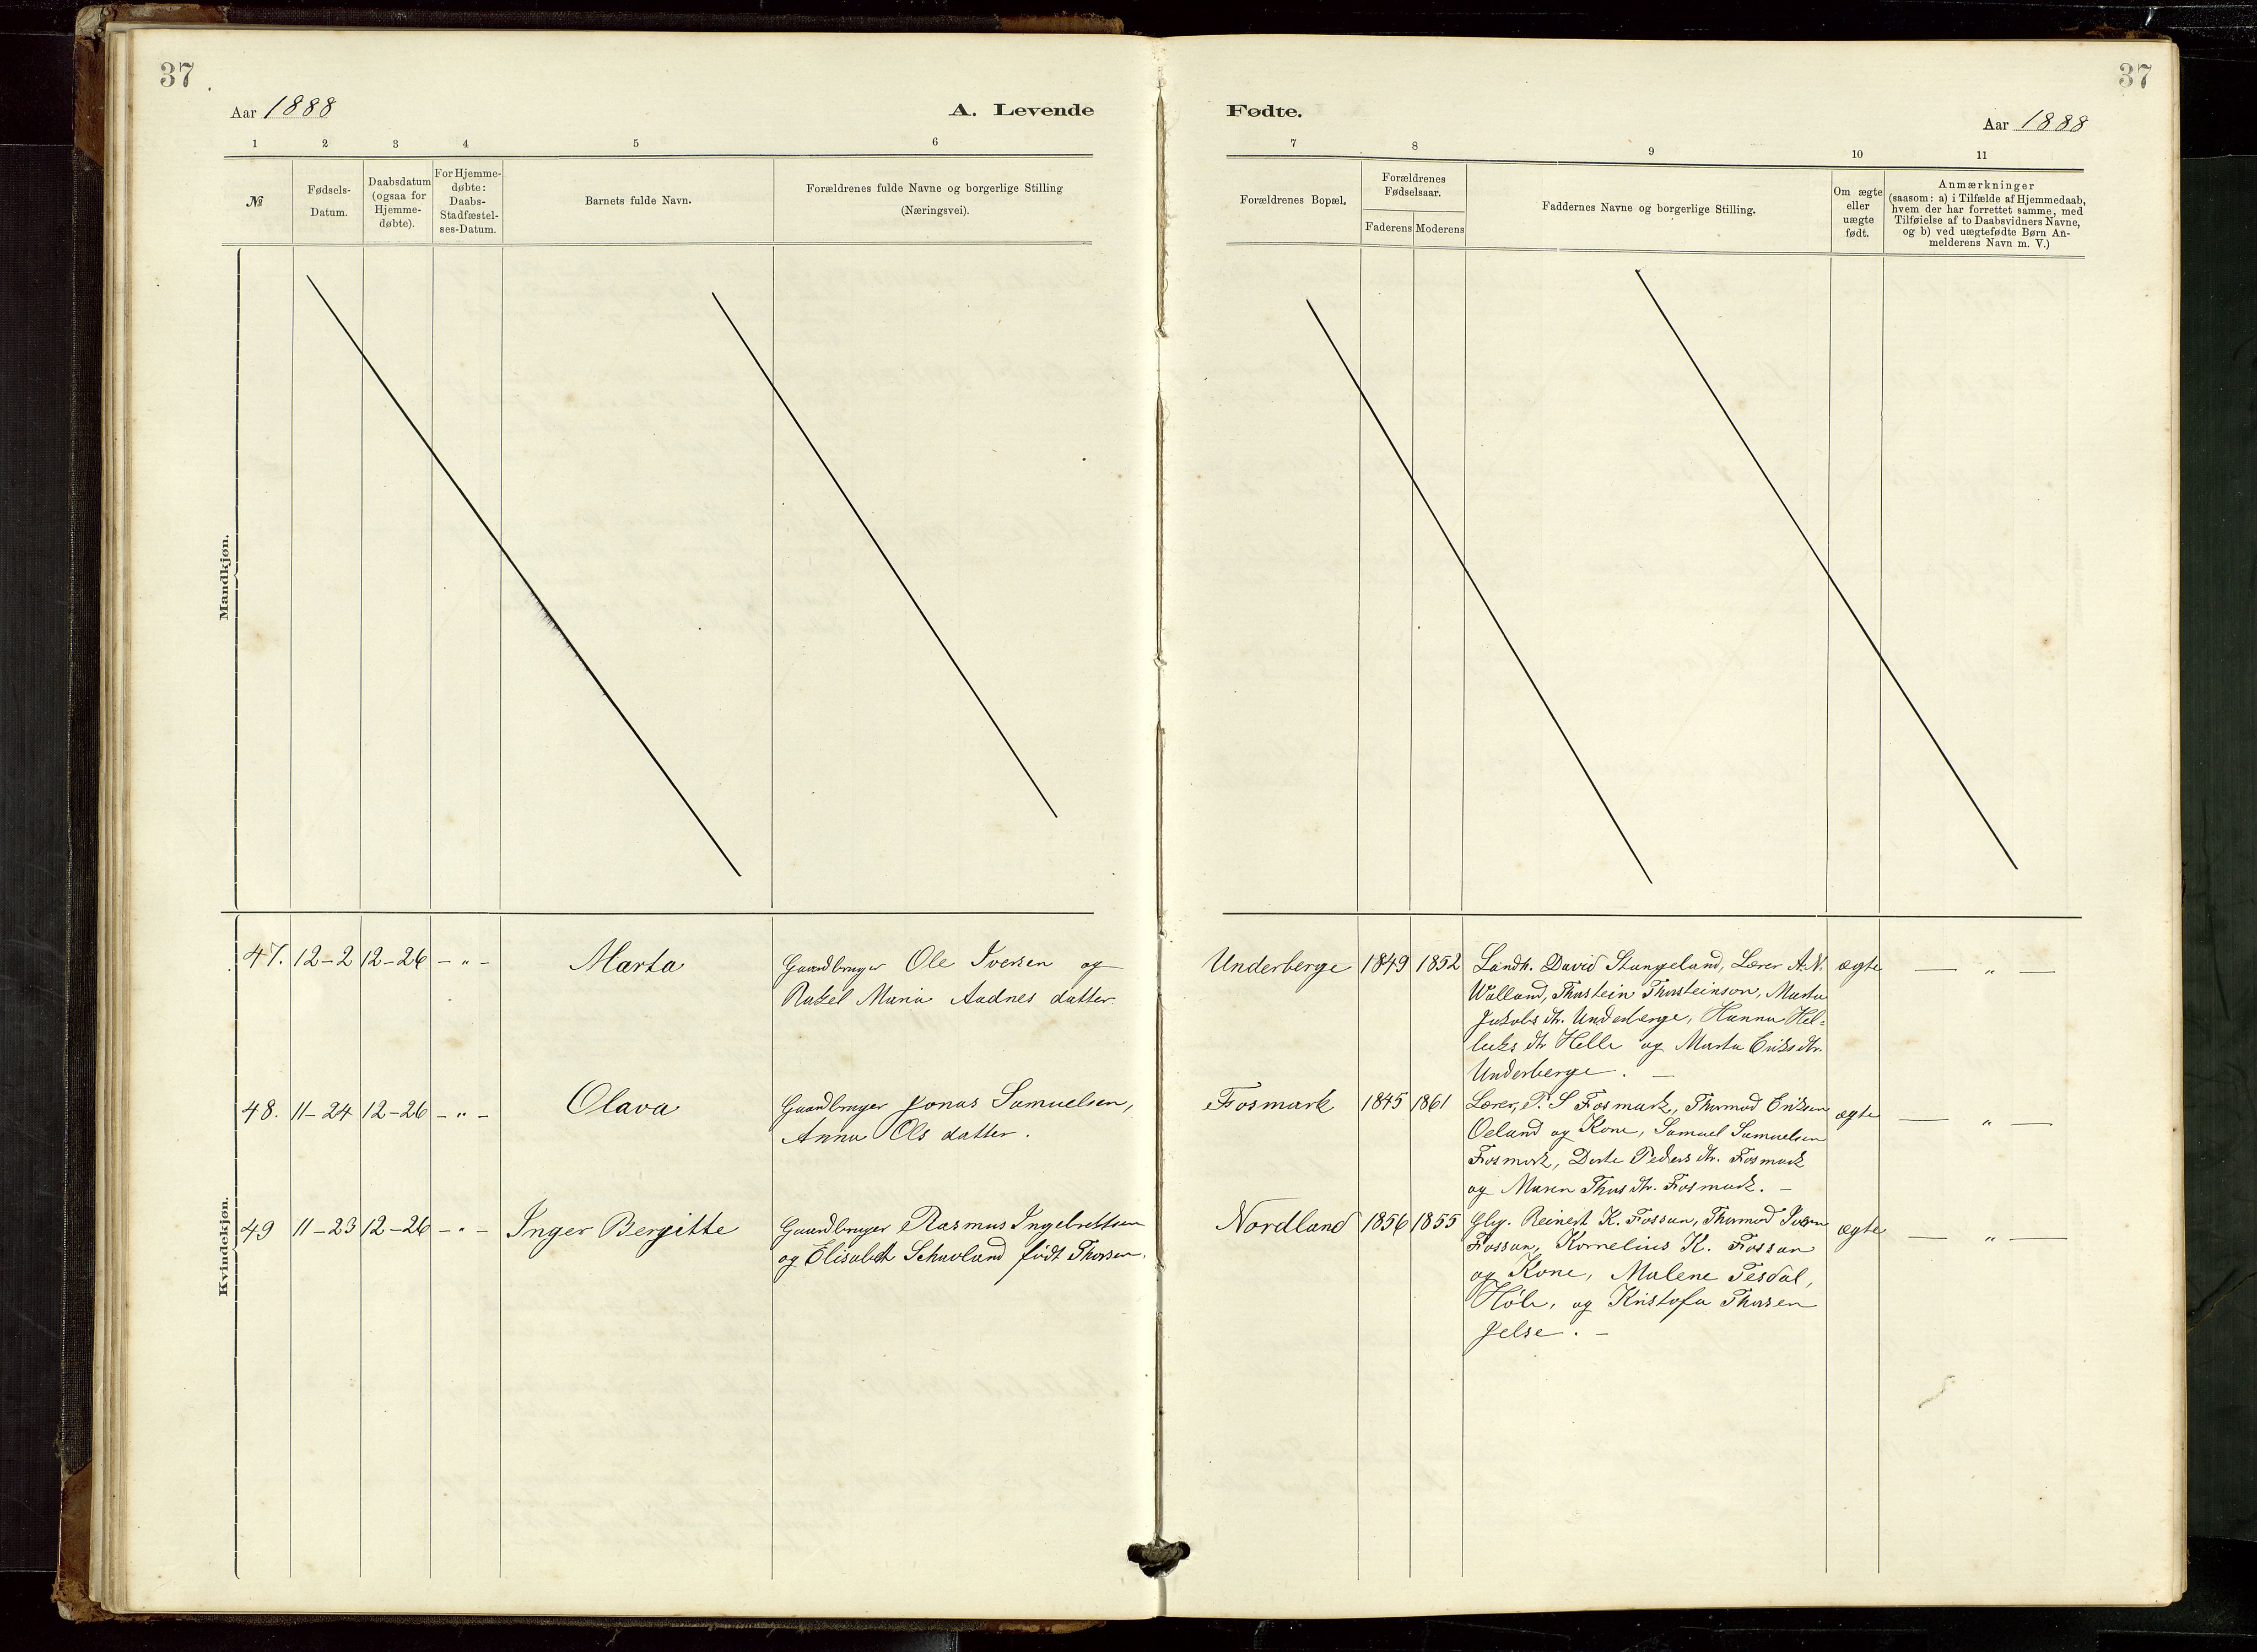 37
37
Aar 1888
A. Levende
Fødte.
Aar 1888
1
2
3
4
5
6
7
8
9
10
11
№
Fødsels-
Datum.
Daabsdatum
(ogsaa for
Hjemme-
døbte).
For Hjemme-
døbte:
Daabs-
Stadfæstel-
ses-Datum.
Barnets fulde Navn.
Forældrenes fulde Navne og borgerlige Stilling
(Næringsvei).
Forældrenes Bopæl.
Forældrenes
Fødselsaar.
Faderens
Moderens
Faddernes Navne og borgerlige Stilling.
Om ægte
eller
uægte
født.
Anmærkninger
(saasom: a) i Tilfælde af Hjemmedaab,
hvem der har forrettet samme, med
Tilføielse af to Daabsvidners Navne,
og b) ved uægtefødte Børn An-
melderens Navn m. V.)
Mandkjøn.
Kvindekjøn.
47. 12-2 12-26 - " -
Marta
Gaardbruger Ole Iversen og
Rakel Maria Aadnes datter.
Underberge
1849
1852
Landh. David Stangeland, Lærer A. N.
Walland, Thorstein Thorsteinson, Marta
Jakobs dtr. Underberge, Hanna Hel-
leiks dtr Helle og Marta Eriks dtr.
Underberge. -
ægte
— " —
48. 11-24 12-26 - " -
Olava
Gaardbruger Jonas Samuelsen,
Anna Ols datter.
Fosmark
1845
1861
Lærer, P. S Fosmark, Thormod Eriksen
Oeland og Kone, Samuel Samuelsen
Fosmark, Dorte Peders dtr. Fosmark
og Maren Thors dtr. Fosmark. -
ægte
— " —
49 11-23 12-26 - " -
Inger Bergitte
Gaardbruger Rasmus Ingebrettsen
og Elisabeth Schavland født Thorsen.
Nordland
1856
1855
Gbg. Reinert K. Fossan, Thormod Iversen
Fossan, Kornelius K. Fossan
og Kone, Malene Tesdal,
Høle, og Kristofa Thorsen
Jelse. -
ægte
— " —